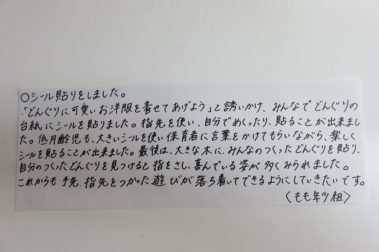 ○シール貼りをしました。
「どんぐりに可愛いお洋服を着せてあげよう」と誘いかけ、みんなでどんぐりの
台紙にシールを貼りました。指先を使い、自分でめくったり、貼ることが出来まし
た。低月齢児も、大きいシールを使い保育者に言葉をかけてもらいながら、楽しく
シールを貼ることが出来ました。最後は、大きな木に、みんなのつくったどんぐりを貼り、
自分のつくったどんぐりを見つけると指をさし、喜んでいる姿が多くみられました。
これからも手先、指先をつかった遊びが落ち着いてできるようにしていきたいです。
〈もも年少組〉